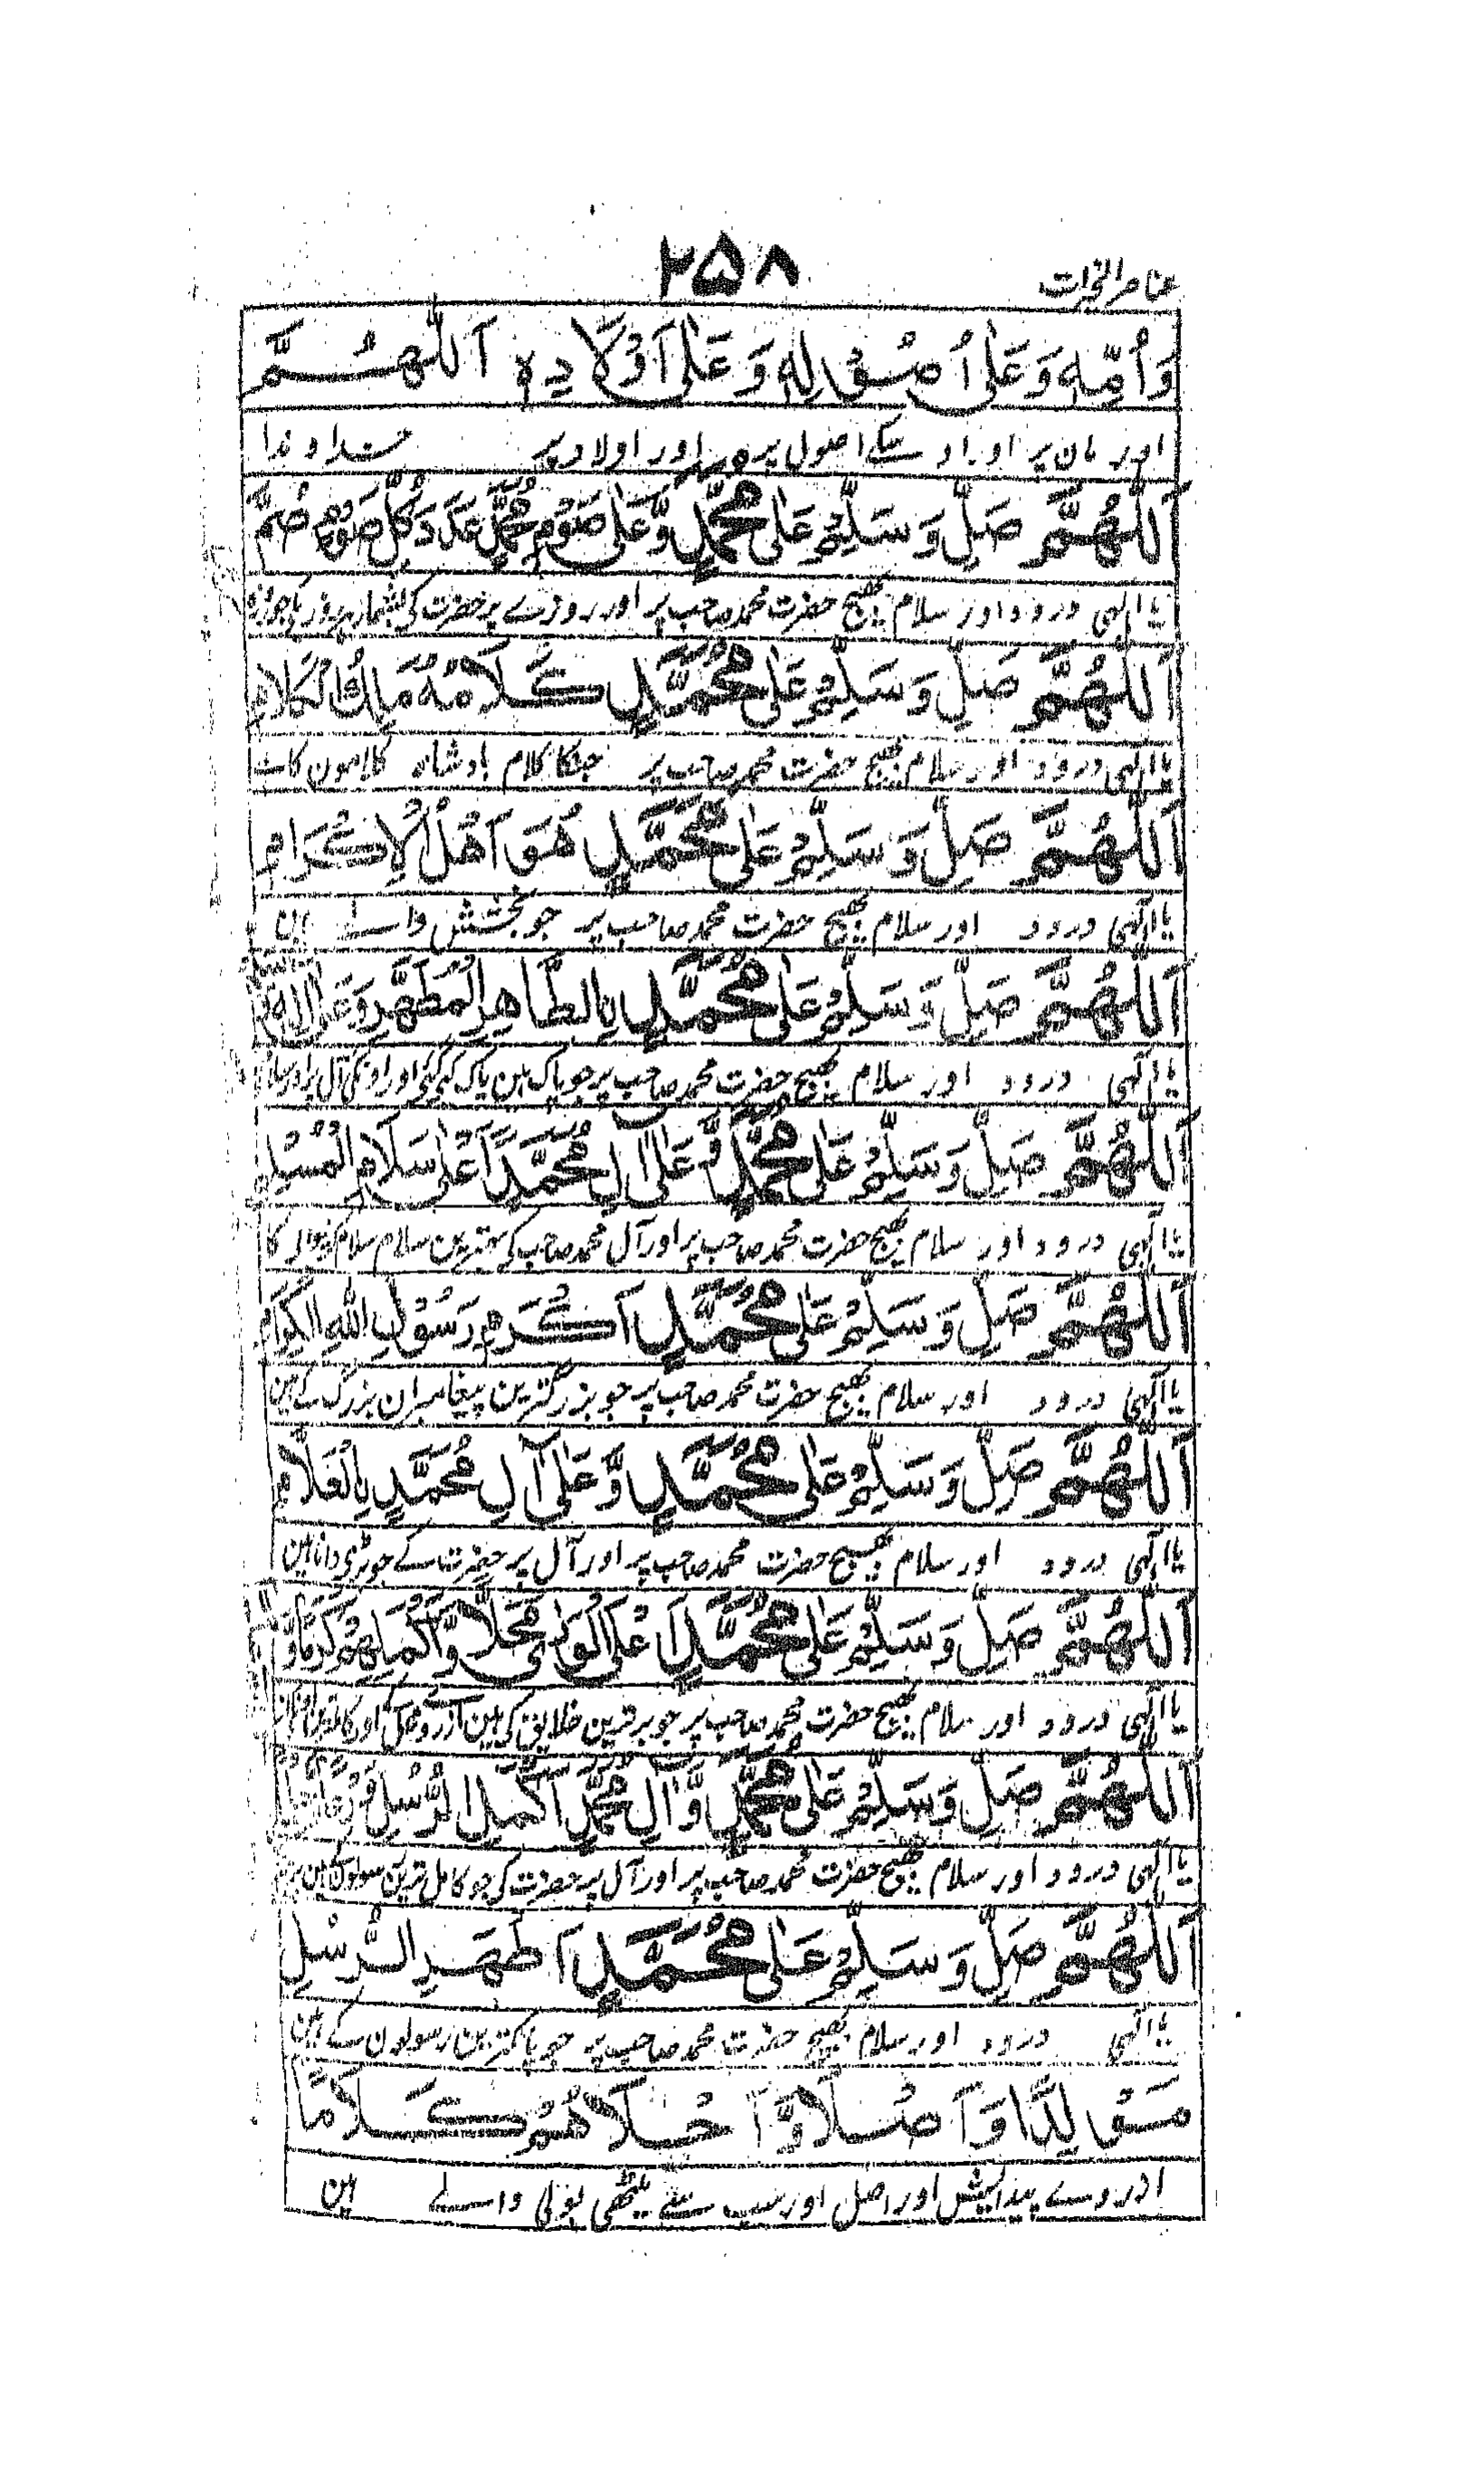 ۲۵۸
عناصر الخیرات
وَاُمِّهٖ وَعَلٰى اُصُوْلِهٖ وَعَلٰى اَوْلَادِهٖ اَللّٰهُمَّ
اور مان پر اور اصول پر اور اولاد پر خداوندا
اَللّٰهُمَّ صَلِّ وَسَلِّمْ عَلٰى مُحَمَّدٍ وَّعَلٰى صَوْمِ مُحَمَّدٍ عَدَدَ كُلِّ صَوْمٍ
یا الٰہی درود اور سلام بھیج حضرت محمد صاحب پر اور روزے پر حضرت کی بشمار ہر روزہ
اَللّٰهُمَّ صَلِّ وَسَلِّمْ عَلٰى مُحَمَّدٍ كَلَامُهٗ مَالِكُ الْكَلَامِ
یا الٰہی درود اور سلام بھیج حضرت محمد صاحب پر جنکا کلام بادشاہ کلامون کا
اَللّٰهُمَّ صَلِّ وَسَلِّمْ عَلٰى مُحَمَّدٍ هُوَ اَهْلُ الْاِكْرَامِ
یا الٰہی درود اور سلام بھیج حضرت محمد صاحب پر جو بخشش والے ہین
اَللّٰهُمَّ صَلِّ وَسَلِّمْ عَلٰى مُحَمَّدٍ بِالطَّاهِرِ الْمُطَهَّرِ وَعَلٰى اٰلِهٖ
یا الٰہی درود اور سلام بھیج حضرت محمد صاحب پر جو پاک ہین پاک کیے گئے اور اونکی آل پر
اَللّٰهُمَّ صَلِّ وَسَلِّمْ عَلٰى مُحَمَّدٍ وَّعَلٰى اٰلِ مُحَمَّدٍ اَعْلٰى سَلَامِ الْمُسْلِمِ
یا الٰہی درود اور سلام بھیج حضرت محمد صاحب پر اور آل محمد صاحب کی بہترین سلام سلام کرنیوالے کا
اَللّٰهُمَّ صَلِّ وَسَلِّمْ عَلٰى مُحَمَّدٍ اَكْرَمِ رَسُوْلِ اللّٰهِ الْكِرَامِ
یا الٰہی درود اور سلام بھیج حضرت محمد صاحب پر جو بزرگترین پیغامبران بزرگ کے ہین
اَللّٰهُمَّ صَلِّ وَسَلِّمْ عَلٰى مُحَمَّدٍ وَّعَلٰى آلِ مُحَمَّدٍ بِالْعَلَّامِ
یا الٰہی درود اور سلام بھیج حضرت محمد صاحب پر اور آل پر حضرت کے جو بڑی دانا ہین
اَللّٰهُمَّ صَلِّ وَسَلِّمْ عَلٰى مُحَمَّدٍ اَعْلَى الْوَرٰى مَحَلًّا وَّاَكْمَلِهِمْ كَرَمًا وَّ
یا الٰہی درود اور سلام بھیج حضرت محمد صاحب پر جو برترین خلایق کی ہین
اَللّٰهُمَّ صَلِّ وَسَلِّمْ عَلٰى مُحَمَّدٍ وَّاٰلِ مُحَمَّدٍ اَكْمَلِ الرُّسُلِ
یا الٰہی درود اور سلام بھیج حضرت محمد صاحب پر اور آل پر حضرت کی جو کامل ترین رسولون کے ہین
اَللّٰهُمَّ صَلِّ وَسَلِّمْ عَلٰى مُحَمَّدٍ اَطْهَرِ الرُّسُلِ
یا الٰہی درود اور سلام بھیج حضرت محمد صاحب پر جو پاکترین رسولون کے ہین
مَوْلِدًا وَّاَصْلًا وَّاَحْلَاهُمْ كَلَامًا
ازروے پیدایش اور اصل اور سب سے میٹھی بولی والے ہین